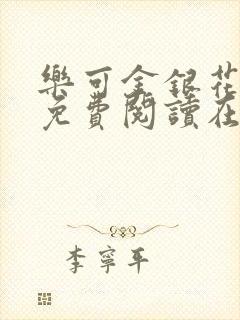 樂可金銀花
免費閱讀在
李寧平